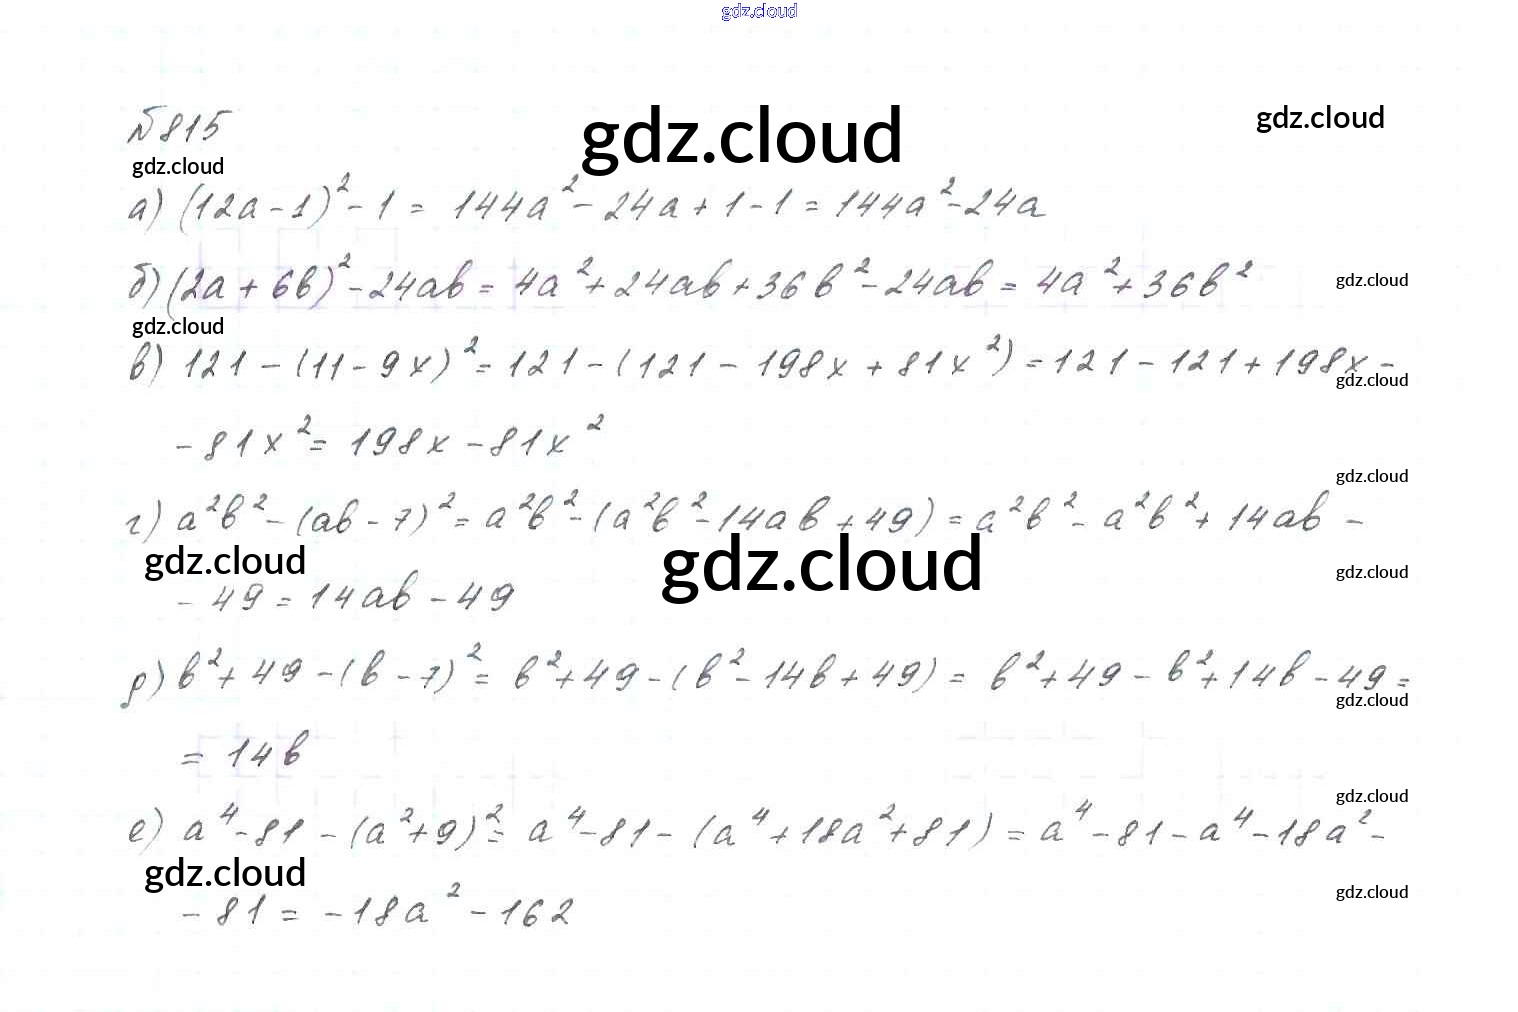 gdz.cloud
№815
gdz.cloud
gdz.cloud
gdz.cloud
а) (12a-1)²-1 = 144a²-24a+1-1 = 144a²-24a
б) (2a+6b)²-24ab = 4a²+24ab+36b²-24ab = 4a²+36b²
gdz.cloud
gdz.cloud
в) 121-(11-9x)² = 121-(121-198x+81x²) = 121-121+198x-
gdz.cloud
-81x² = 198x-81x²
gdz.cloud
г) a²b²-(ab-7)² = a²b²-(a²b²-14ab+49) = a²b²-a²b²+14ab-
gdz.cloud
gdz.cloud
gdz.cloud
-49 = 14ab-49
д) b²+49-(b-7)² = b²+49-(b²-14b+49) = b²+49-b²+14b-49 =
gdz.cloud
= 14b
gdz.cloud
е) a⁴-81-(a²+9)² = a⁴-81-(a⁴+18a²+81) = a⁴-81-a⁴-18a²-
gdz.cloud
gdz.cloud
-81 = -18a²-162